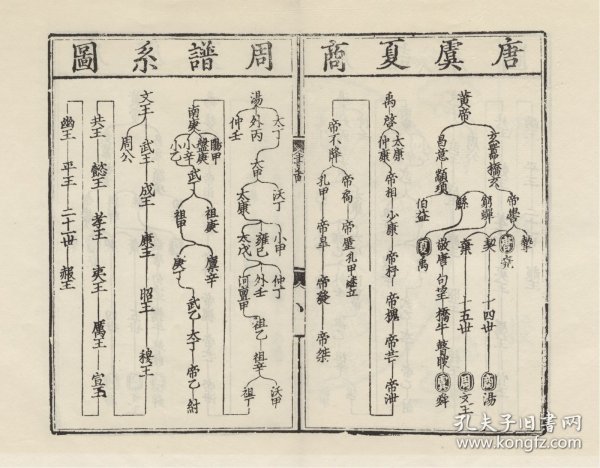 唐虞夏商
周譜系圖
黃帝
玄囂 橋亢
帝嚳
摯
堯
昌意 顓頊
窮蟬
鯀
禹
伯益
契 十四世 湯
棄 十五世 文王
敬康 句望 橋牛 瞽瞍 舜
禹 啓
太康
仲康 帝相 少康 帝杼 帝槐 帝芒 帝泄
帝不降
帝扃 帝廑 孔甲 立
孔甲 帝皋 帝發 帝桀
湯
太丁
外丙
仲壬
太甲
沃丁
太康
小甲
雍己
太戊
仲丁
外壬
河亶甲
祖乙 祖辛
沃甲
祖丁
南庚
陽甲
盤庚
小辛
小乙
武丁
祖庚
祖甲
廩辛
庚丁
武乙 太丁 帝乙 紂
文王 武王 成王 康王 昭王 穆王
周公
共王 懿王 孝王 夷王 厲王 宣王
幽王 平王 二十一世 赧王
八
孔夫子旧书网
www.kongfz.com